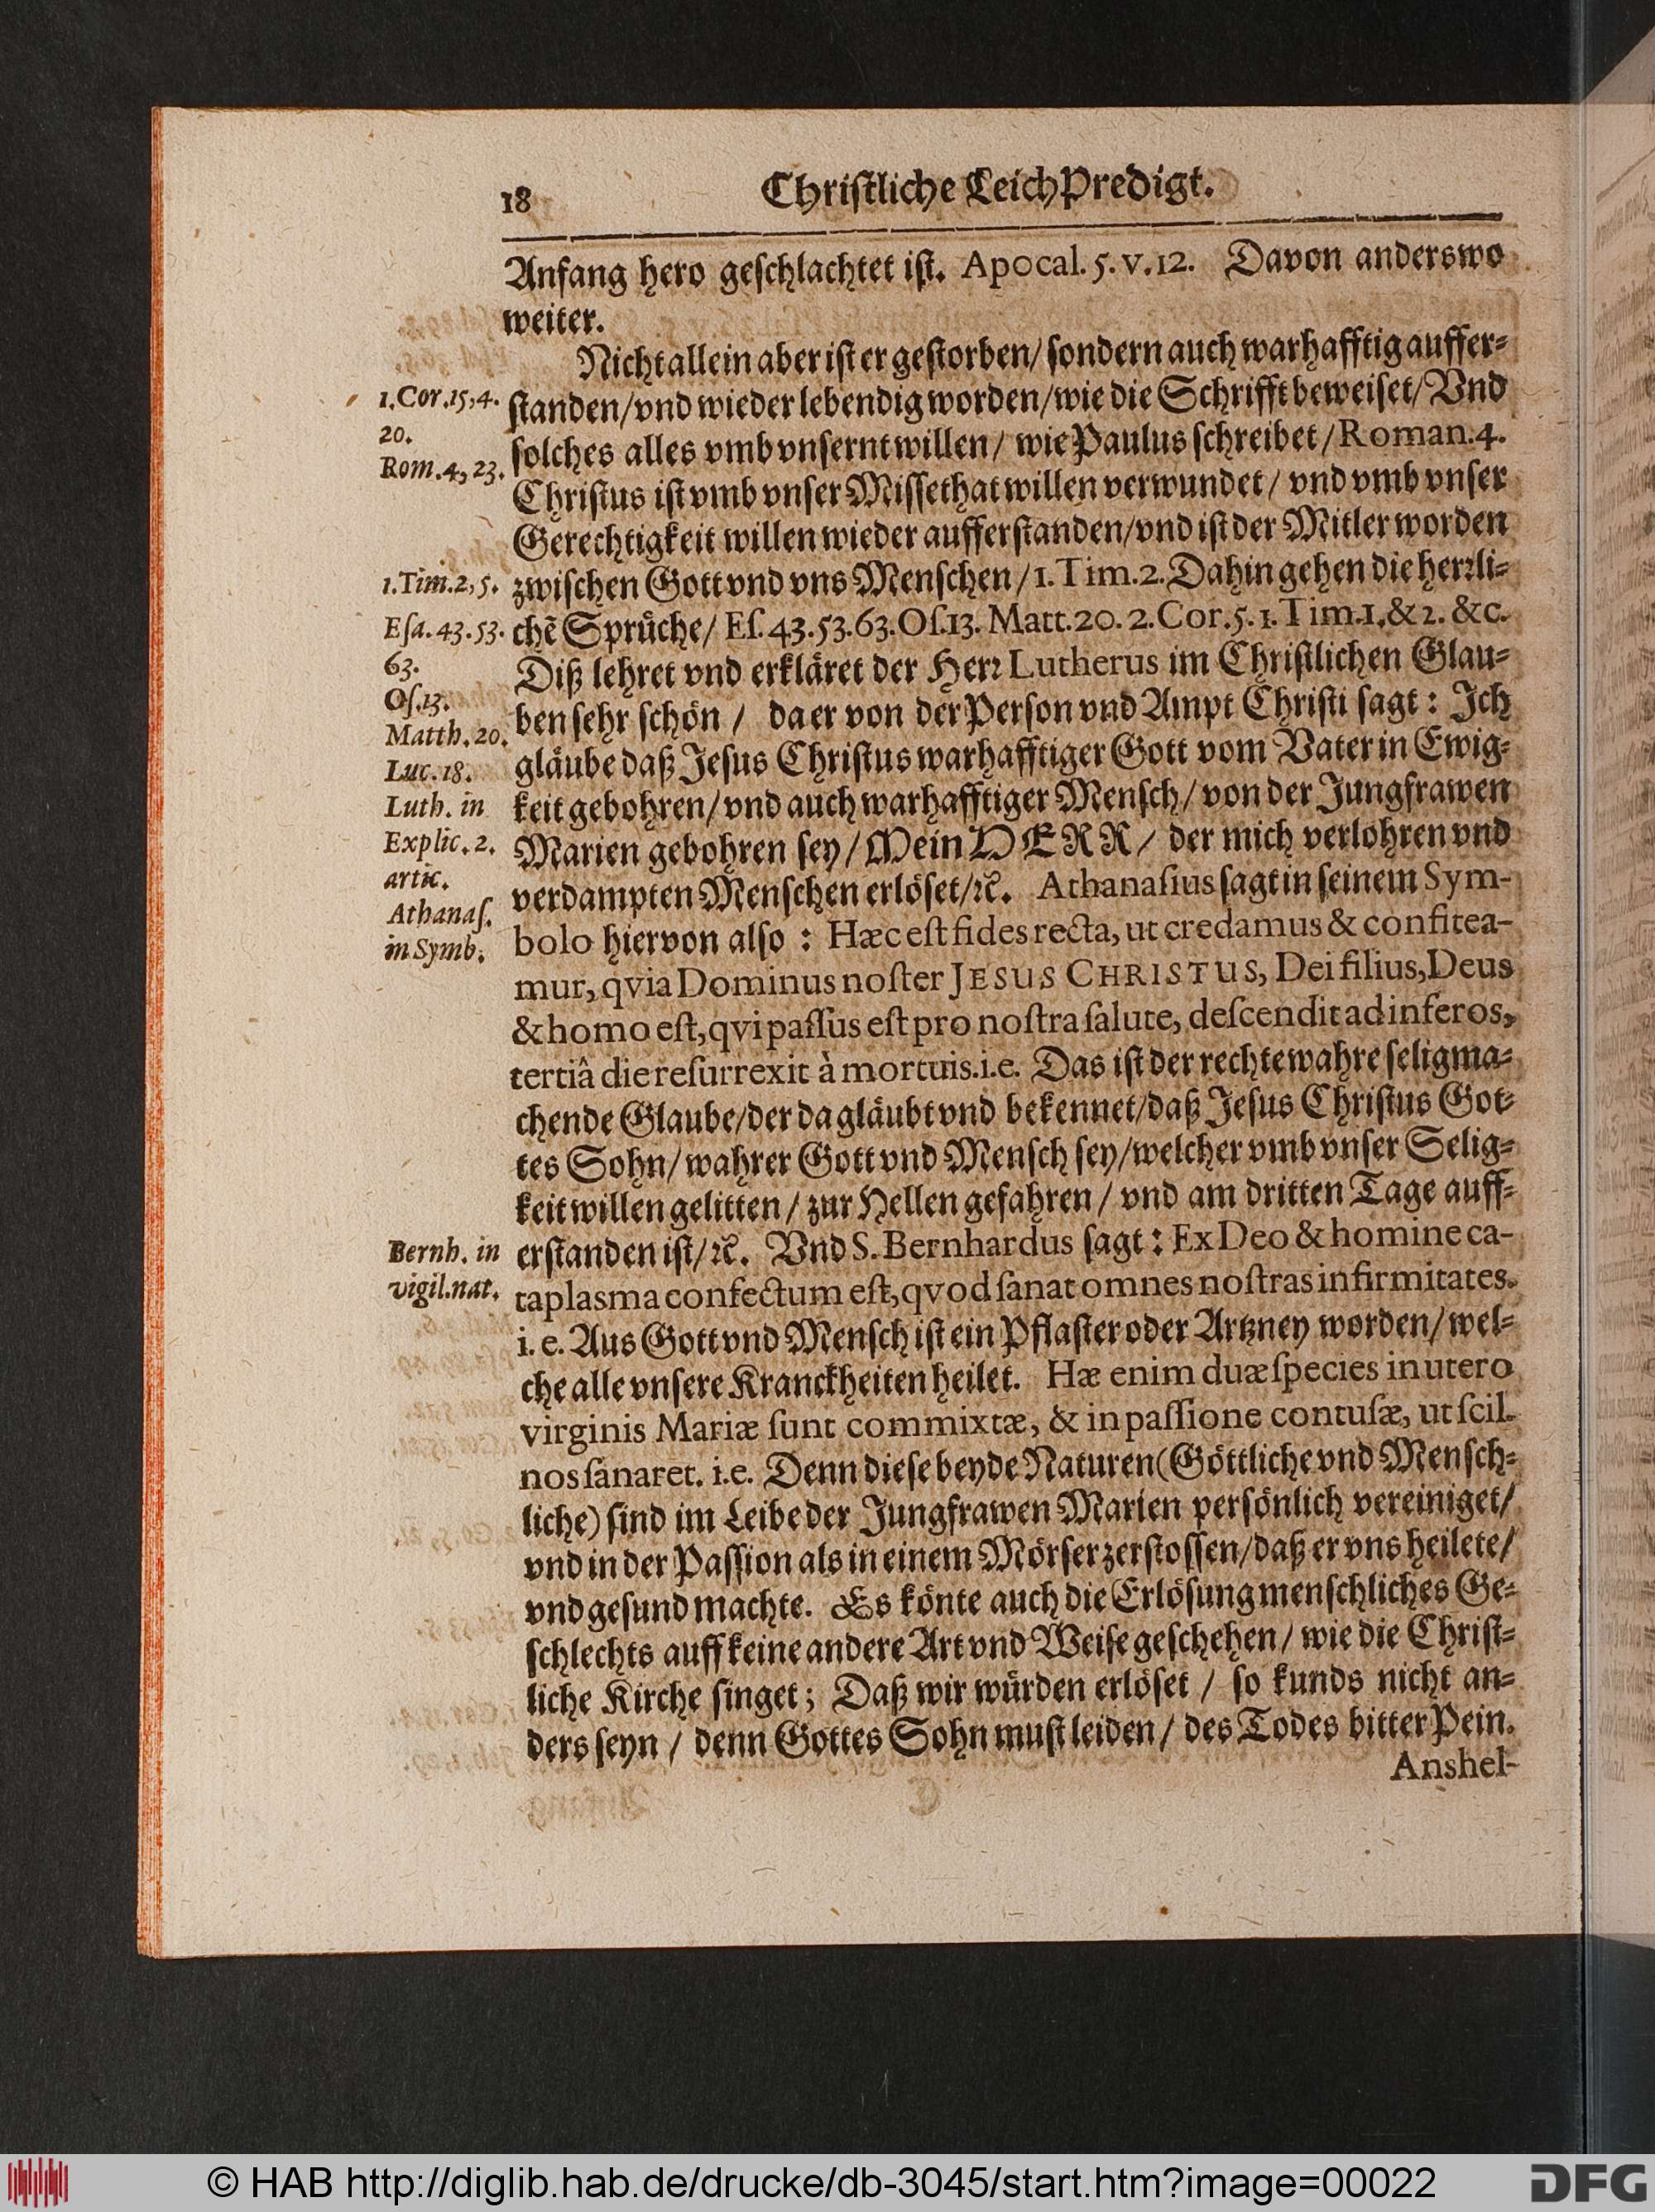 18 Chriſtliche LeichPredigt.
Anfang hero geſchlachtet iſt. Apocal. 5. v. 12. Davon anderswo
weiter.
Nicht allein aber iſt er geſtorben/ ſondern auch warhafftig auffer-
ſtanden/ vnd wieder lebendig worden/ wie die Schrifft beweiſet/ Vnd
ſolches alles vmb vnſernt willen/ wie Paulus ſchreibet/ Roman. 4.
Chriſtus iſt vmb vnſer Miſſethat willen verwundet/ vnd vmb vnſer
Gerechtigkeit willen wieder aufferſtanden/ vnd iſt der Mitler worden
zwiſchen Gott vnd vns Menſchen/ 1. Tim. 2. Dahin gehen die herꝛli-
chẽ Sprüche/ Eſ. 43. 53. 63. Oſ. 13. Matt. 20. 2. Cor. 5. 1. Tim. 1. & 2. &c.
Diß lehret vnd erkläret der Herꝛ Lutherus im Chriſtlichen Glau-
ben ſehr ſchön / da er von der Perſon vnd Ampt Chriſti ſagt: Ich
gläube daß Jeſus Chriſtus warhafftiger Gott vom Vater in Ewig-
keit gebohren/ vnd auch warhafftiger Menſch/ von der Jungfrawen
Marien gebohren ſey/ Mein HERR/ der mich verlohren vnd
verdampten Menſchen erlöſet/ ꝛc. Athanaſius ſagt in ſeinem Sym-
bolo hiervon alſo: Hæc eſt fides recta, ut credamus & confitea-
mur, qvia Dominus noſter JESUS CHRISTUS, Dei filius, Deus
& homo eſt, qvi paſſus eſt pro noſtra ſalute, deſcendit ad inferos,
tertiâ die reſurrexit à mortuis. i.e. Das iſt der rechte wahre ſeligma-
chende Glaube/ der da gläubt vnd bekennet/ daß Jeſus Chriſtus Got-
tes Sohn/ wahrer Gott vnd Menſch ſey/ welcher vmb vnſer Selig-
keit willen gelitten/ zur Hellen gefahren/ vnd am dritten Tage auff-
erſtanden iſt/ ꝛc. Vnd S. Bernhardus ſagt: Ex Deo & homine ca-
taplasma confectum eſt, qvod ſanat omnes noſtras infirmitates.
i. e. Aus Gott vnd Menſch iſt ein Pflaſter oder Artzney worden/ wel-
che alle vnſere Kranckheiten heilet. Hæ enim duæ ſpecies in utero
virginis Mariæ ſunt commixtæ, & in paſſione contuſæ, ut ſcil.
nos ſanaret. i.e. Denn dieſe beyde Naturen (Göttliche vnd Menſch-
liche) ſind im Leibe der Jungfrawen Marien perſönlich vereiniget/
vnd in der Paſſion als in einem Mörſer zerſtoſſen/ daß er vns heilete/
vnd geſund machte. Es könte auch die Erlöſung menſchliches Ge-
ſchlechts auff keine andere Art vnd Weiſe geſchehen/ wie die Chriſt-
liche Kirche ſinget; Daß wir würden erlöſet / ſo kunds nicht an-
ders ſeyn / denn Gottes Sohn muſt leiden/ des Todes bitter Pein.
Anshel-
1. Cor. 15, 4.
20.
Rom. 4, 23.
1. Tim. 2, 5.
Eſa. 43. 53.
63.
Oſ. 13.
Matth. 20.
Luc. 18.
Luth. in
Explic. 2.
artic.
Athanaſ.
in Symb.
Bernh. in
vigil. nat.
© HAB http://diglib.hab.de/drucke/db-3045/start.htm?image=00022
DFG